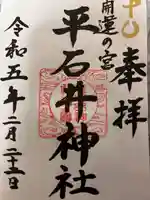 奉拝
開運の宮
平石井神社
令和五年二月二十三日